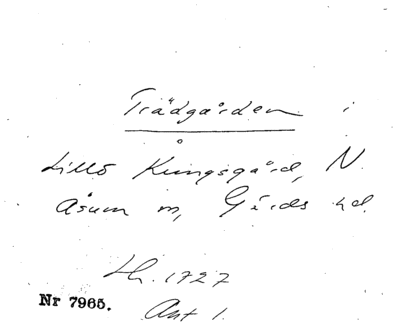 Trädgården i
Lillö Kungsgård, N.
Åsum sn, Gärds hd.
Lh. 1727
Nr 7965. Ant 1.